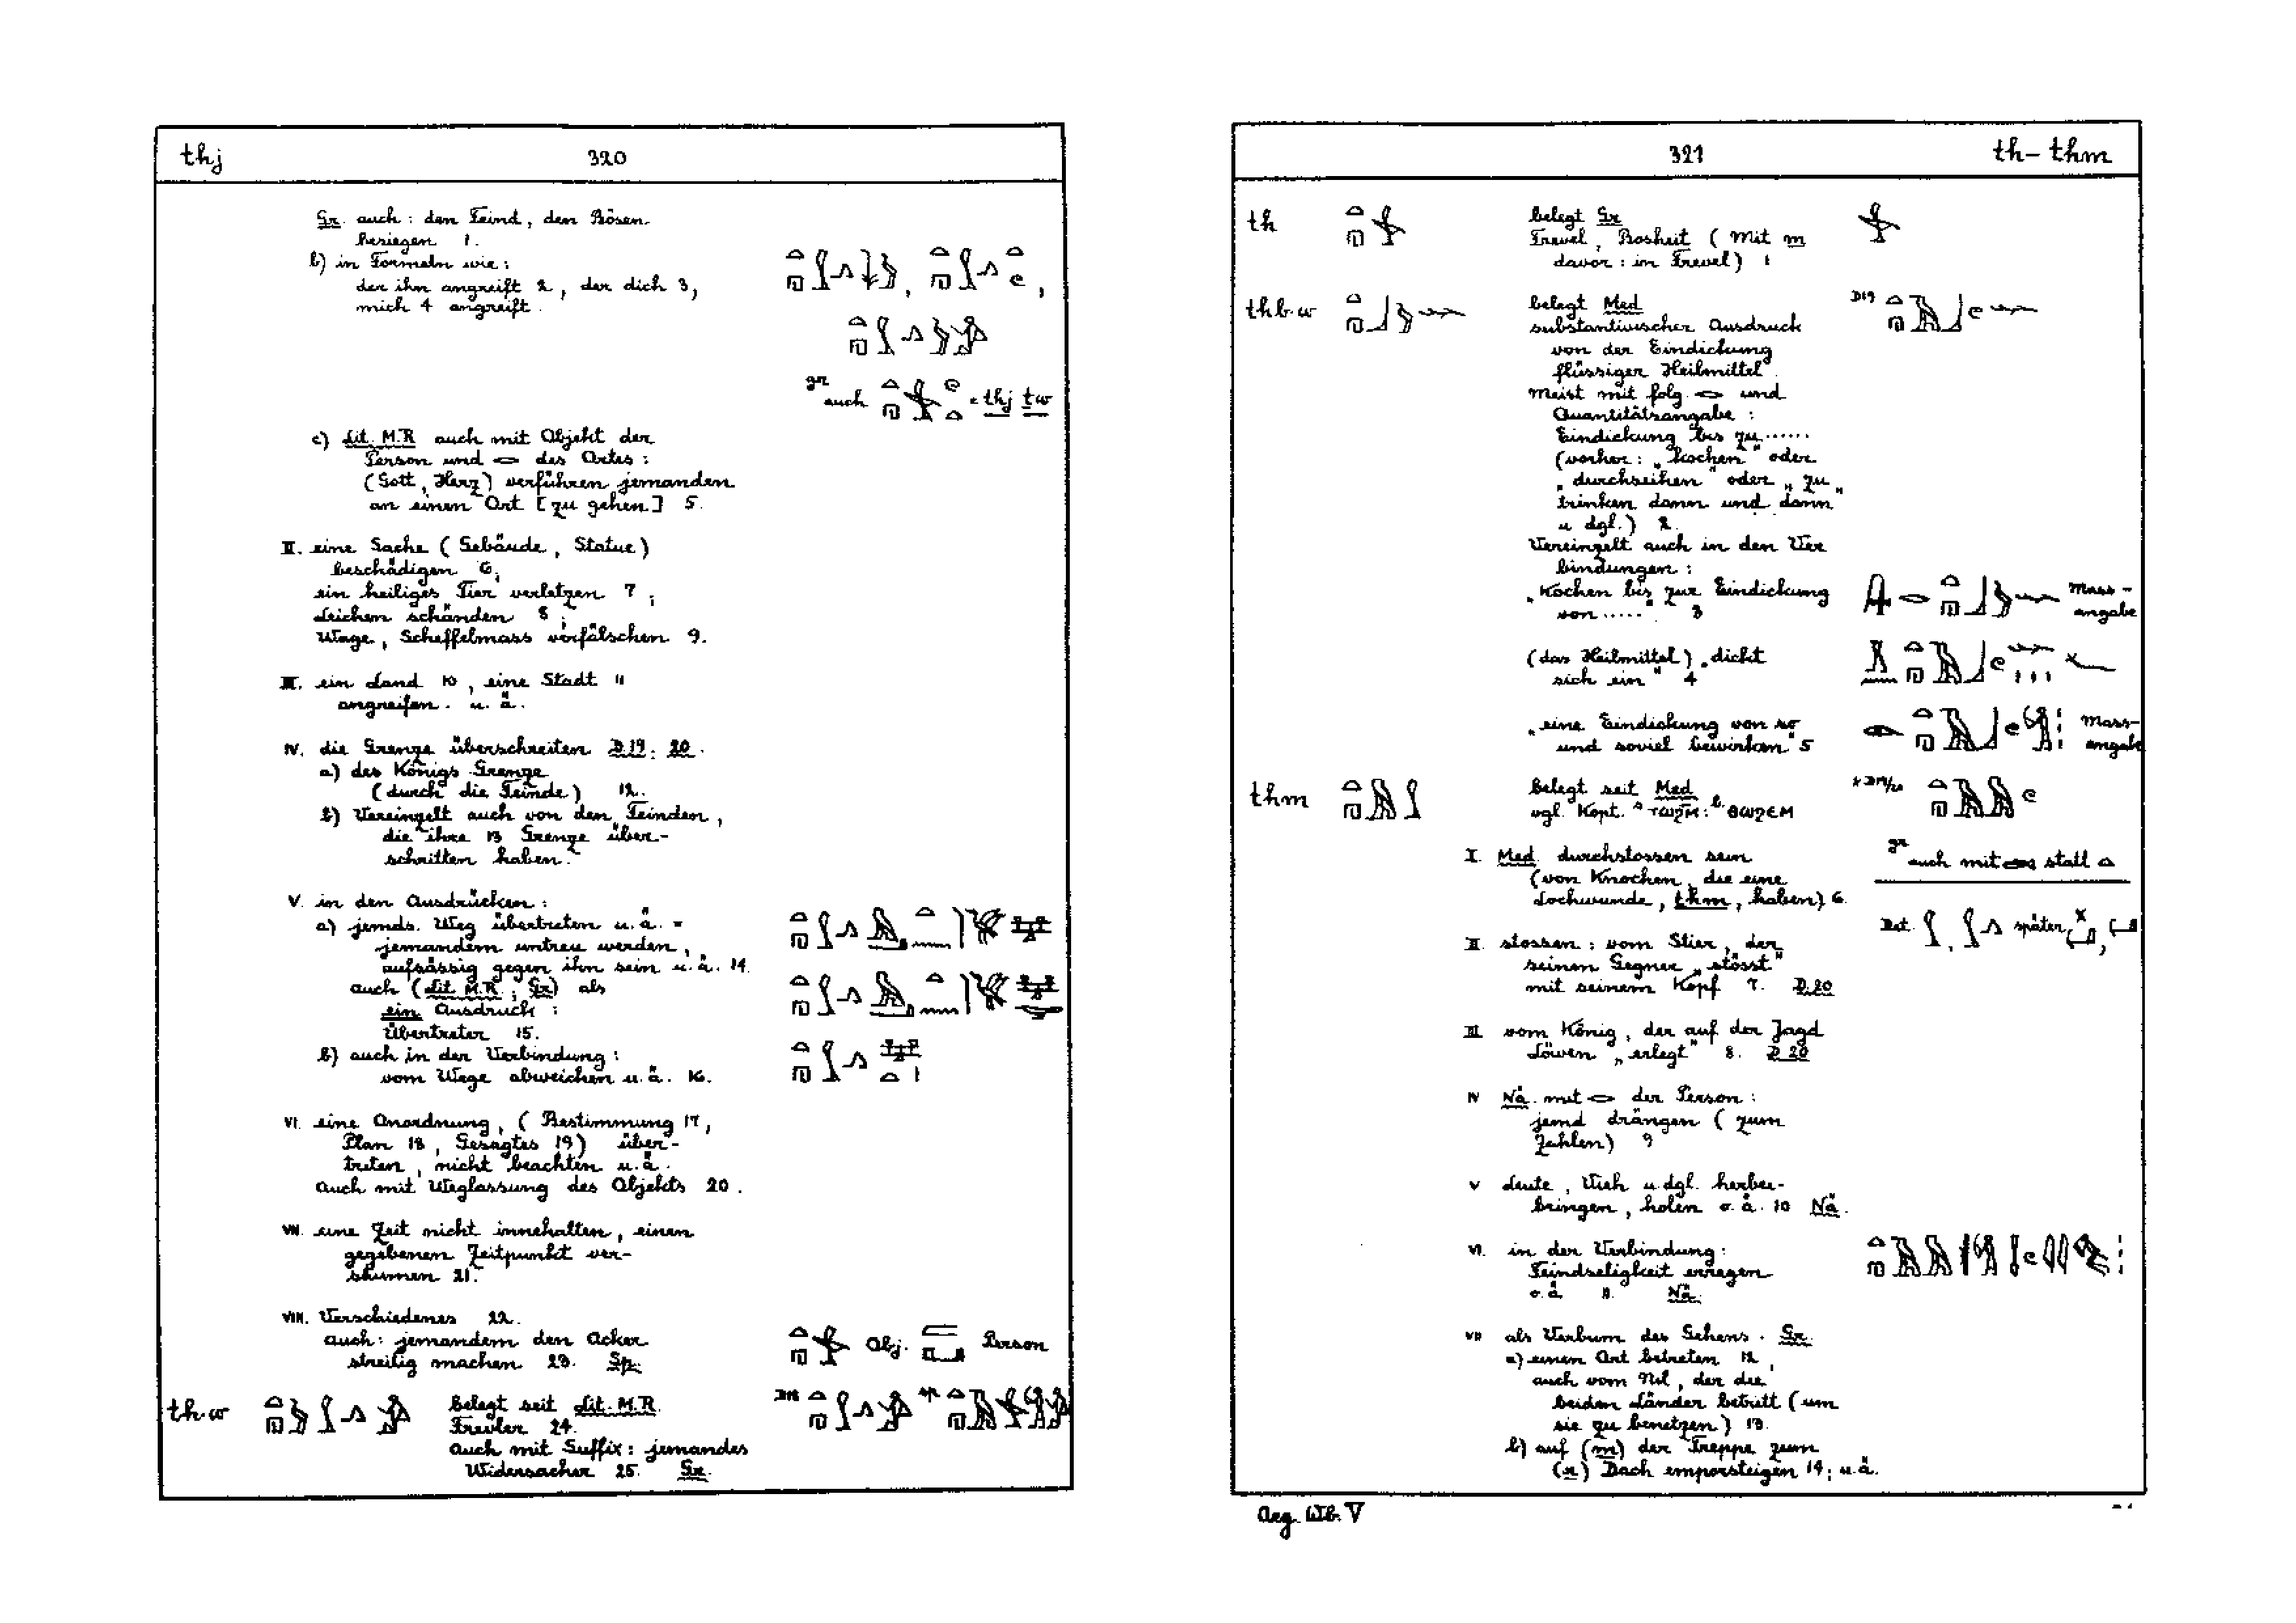 thj 320
Gr. auch: den Feind, den Bösen
besiegen 1.
b) in Formeln wie:
der ihn angreift 2, der dich 3,
mich 4 angreift.
gr auch = thj tw
c) Lit. M.R auch mit Objekt der
Person und 𓂋 des Ortes:
(Gott, Herz) verführen jemanden
an einen Ort [zu gehen] 5.
II. eine Sache (Gebäude, Statue)
beschädigen 6;
ein heiliges Tier verletzen 7;
Leichen schänden 8;
Wage, Scheffelmass verfälschen 9.
III. ein Land 10, eine Stadt 11
angreifen. u. ä.
IV. die Grenze überschreiten D.19. 20.
a) des Königs Grenze
(durch die Feinde) 12.
b) Vereinzelt auch von den Feinden,
die ihre 13 Grenze über-
schritten haben.
V. in den Ausdrücken:
a) jemds. Weg übertreten u. ä. =
jemandem untreu werden,
aufsässig gegen ihn sein u. ä. 14.
auch (Lit. M.R., Gr) als
ein Ausdruck:
Übertreter 15.
b) auch in der Verbindung:
vom Wege abweichen u. ä. 16.
VI. eine Anordnung, (Bestimmung 17,
Plan 18, Gesagtes 19) über-
treten, nicht beachten u. ä.
Auch mit Weglassung des Objekts 20.
VII. eine Zeit nicht innehalten, einen
gegebenen Zeitpunkt ver-
säumen 21.
VIII. Verschiedenes 22.
auch: jemandem den Acker Obj. Person
streitig machen 23. Sp.
th.w belegt seit Lit. M.R. D18 Sp.
Frevler 24.
Auch mit Suffix: jemandes
Widersacher 25. Gr.
321 th – thm
th belegt Gr
Frevel, Bosheit (Mit m
davor: im Frevel) 1
thb.w belegt Med D19
substantivischer Ausdruck
von der Eindickung
flüssiger Heilmittel.
Meist mit folg. 𓂋 und
Quantitätsangabe:
Eindickung bis zu ......
(vorher: „kochen" oder
„durchseihen" oder „zu
trinken dann und dann"
u dgl.) 2.
Vereinzelt auch in den Ver
bindungen:
„Kochen bis zur Eindickung Mass-
von ....." 3 angabe
(das Heilmittel) „dickt
sich ein" 4
„eine Eindickung von so Mass-
und soviel bewirken" 5 angabe
thm Belegt seit Med
vgl. Kopt. S ⲧⲱϩⲙ: b. ⲑⲱϩⲉⲙ
I. Med. durchstossen sein gr auch mit statt 𓏏
(von Knochen, die eine
Lochwunde, thm, haben) 6.
Det. später
II. stossen: vom Stier, der
seinen Gegner „stösst"
mit seinem Kopf 7. D.20
III vom König, der auf der Jagd
Löwen „erlegt" 8. D 20
IV Nä. mit 𓂋 der Person:
jemd drängen (zum
Zahlen) 9
V Leute, Vieh u. dgl. herbei-
bringen, holen o. ä. 10 Nä.
VI. in der Verbindung:
Feindseligkeit erregen
o. ä 11. Nä.
VII als Verbum des Gehens. Gr.
a) einen Ort betreten 12,
auch vom Nil, der die
beiden Länder betritt (um
sie zu benetzen) 13.
b) auf (m) der Treppe zum
(r) Dach emporsteigen 14; u. ä.
Aeg. Wb. V